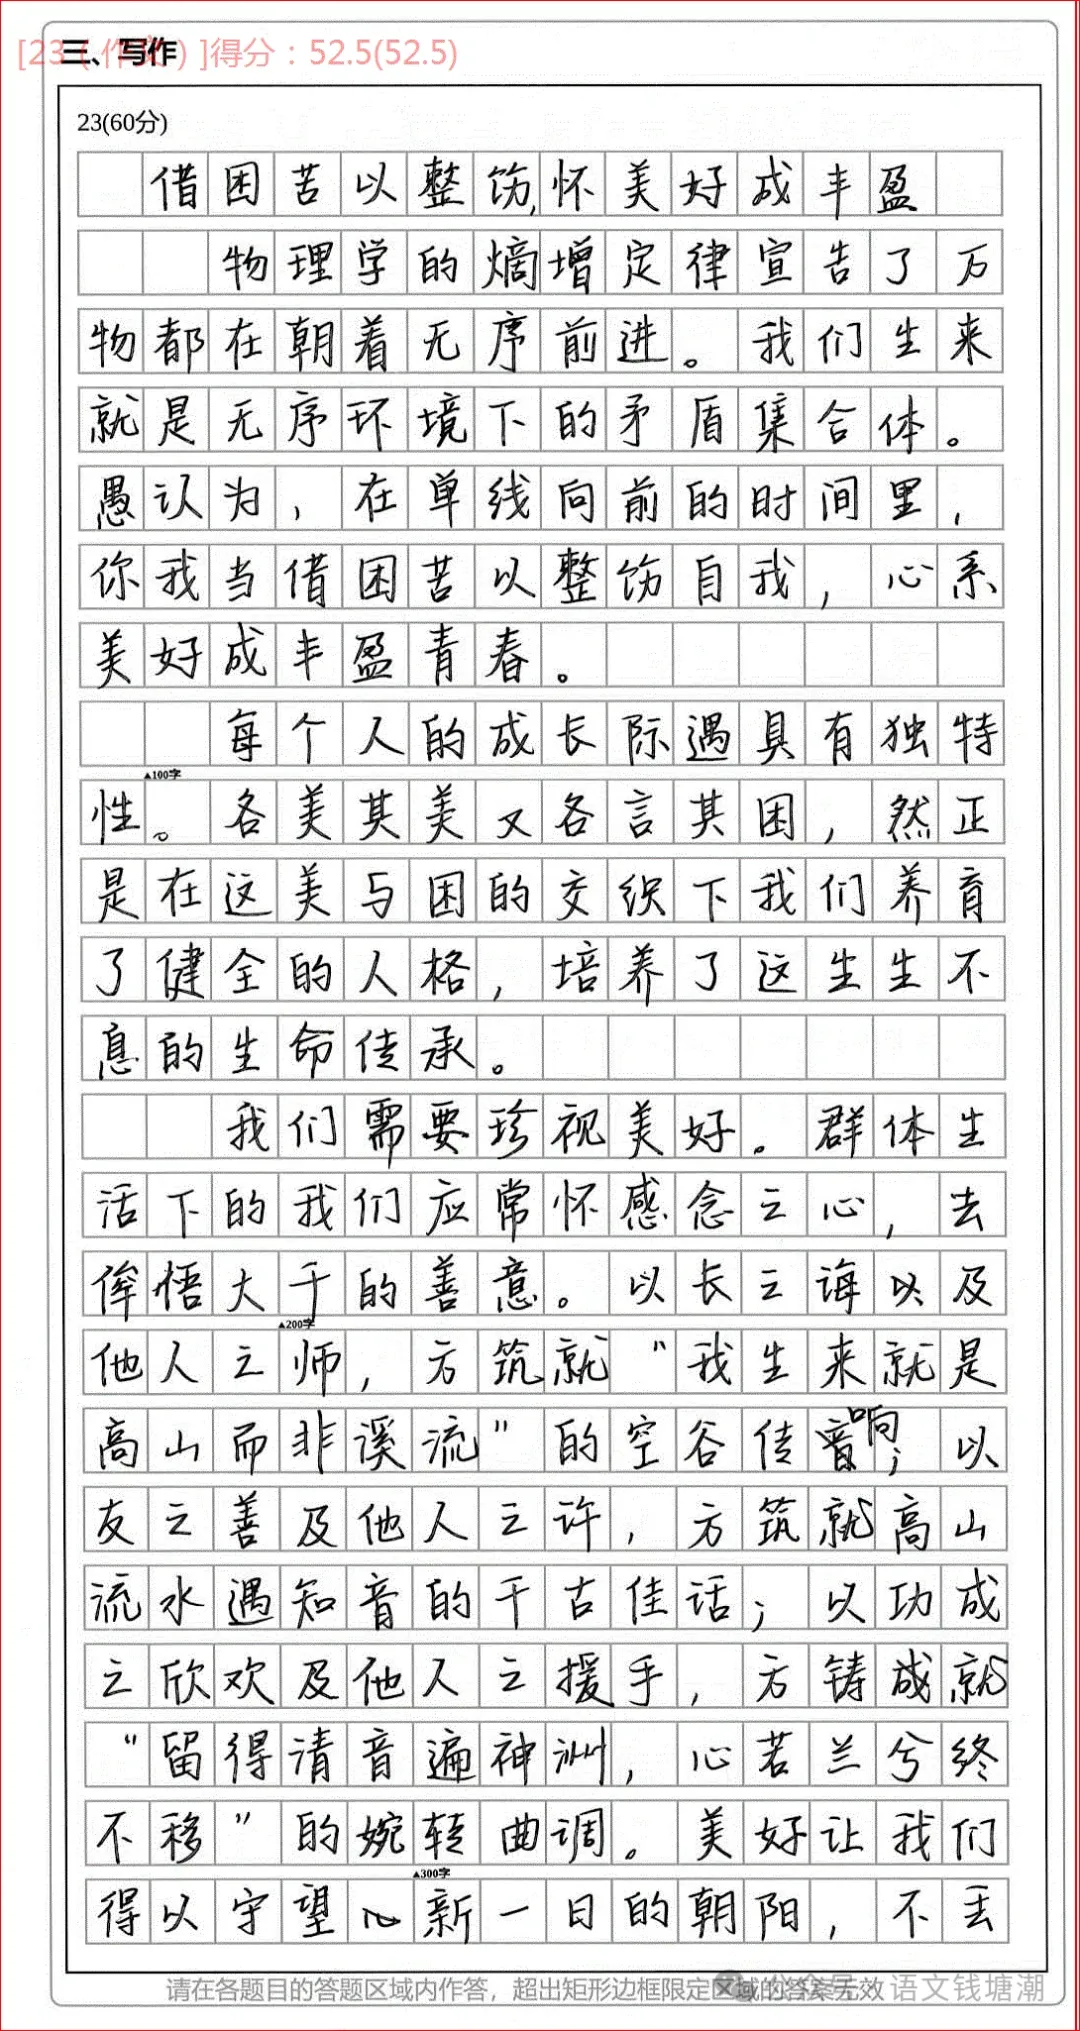 [23(作文)]得分：52.5(52.5)
三、写作
23(60分)
借困苦以整饬,怀美好成丰盈
物理学的熵增定律宣告了万
物都在朝着无序前进。我们生来
就是无序环境下的矛盾集合体。
愚认为，在单线向前的时间里，
你我当借困苦以整饬自我，心系
美好成丰盈青春。
每个人的成长际遇具有独特
▲100字
性。各美其美又各言其困，然正
是在这美与困的交织下我们养育
了健全的人格，培养了这生生不
息的生命传承。
我们需要珍视美好。群体生
活下的我们应常怀感念之心，去
体悟大千的善意。以长之诲以及
▲200字
他人之师，方筑就“我生来就是
高山而非溪流”的空谷传响；以
友之善及他人之许，方筑就高山
流水遇知音的千古佳话；以功成
之欣欢及他人之援手，方铸成就
“留得清音遍神洲，心若兰兮终
不移”的婉转曲调。美好让我们
▲300字
得以守望新一日的朝阳，不丢
请在各题目的答题区域内作答，超出矩形边框限定区域的答案无效
公众号·语文钱塘潮